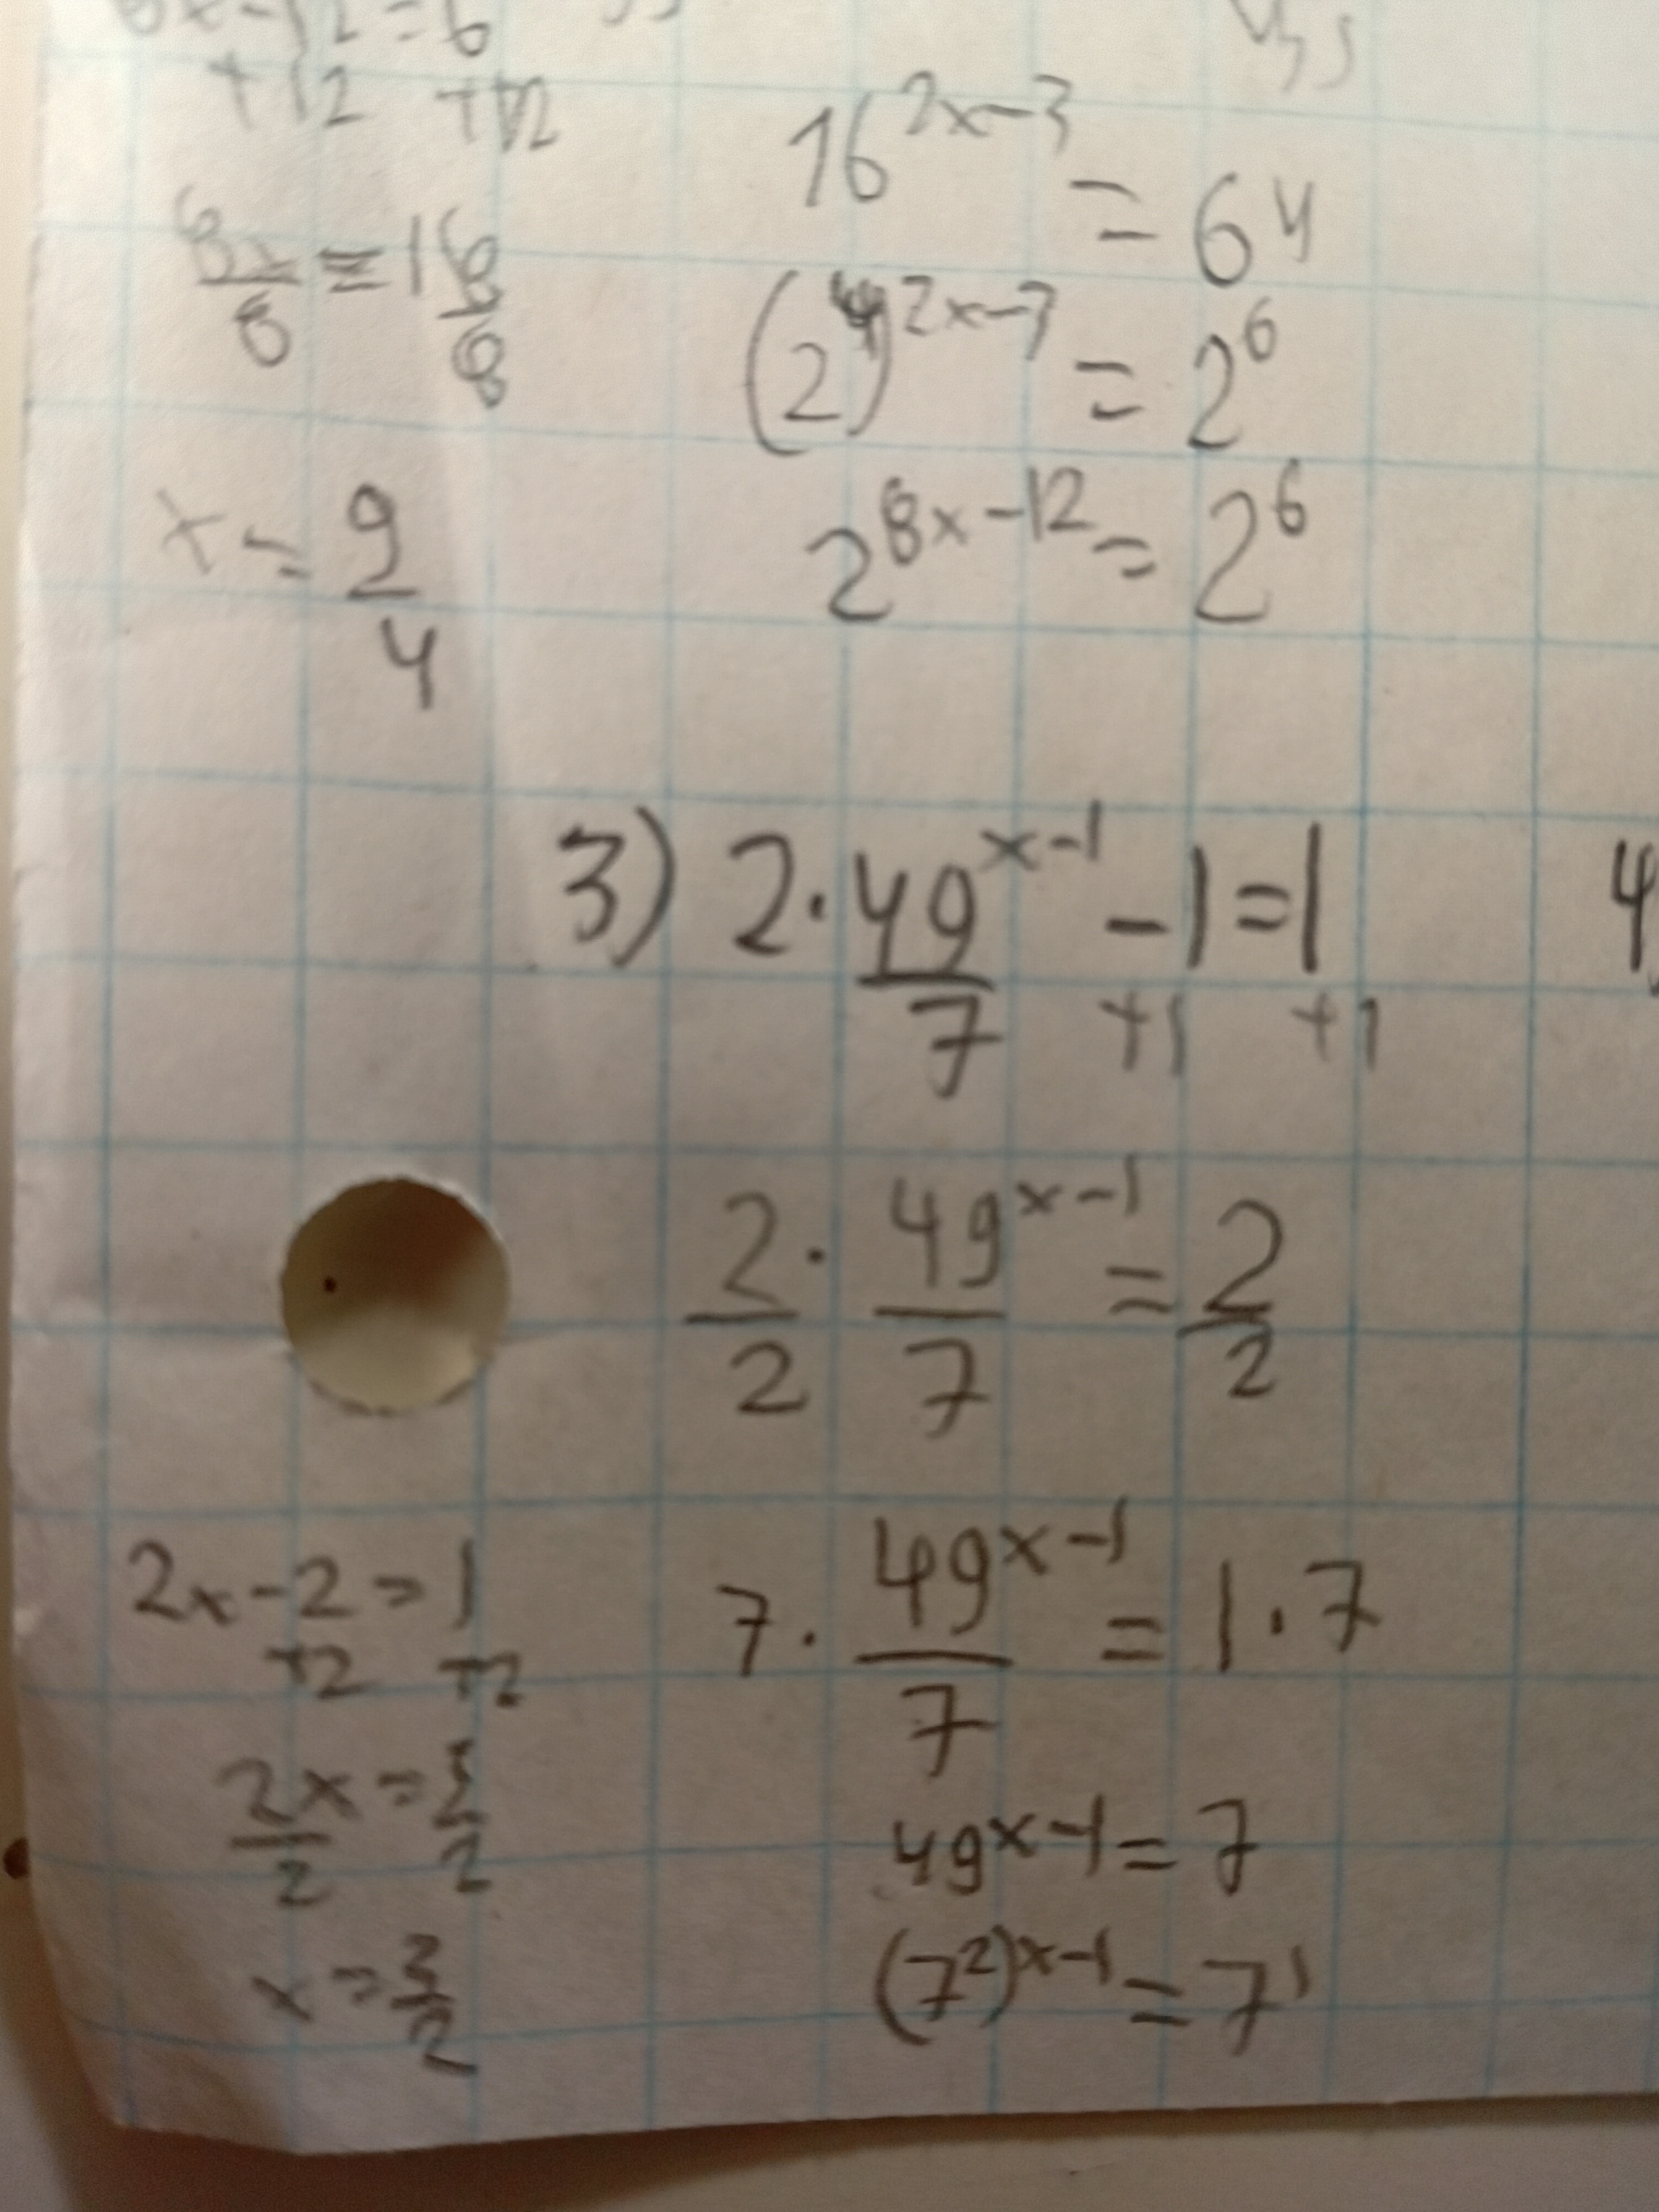 8x-12=6
+12 +12
8x/8 = 18/8
x = 9/4
16^(2x-3) = 64
(2^4)^(2x-3) = 2^6
2^(8x-12) = 2^6
3) 2·49^(x-1)/7 -1=1
+1 +1
2/2 · 49^(x-1)/7 = 2/2
7· 49^(x-1)/7 = 1·7
49^(x-1) = 7
(7^2)^(x-1) = 7^1
2x-2=1
+2 +2
2x/2 = 3/2
x = 3/2
4